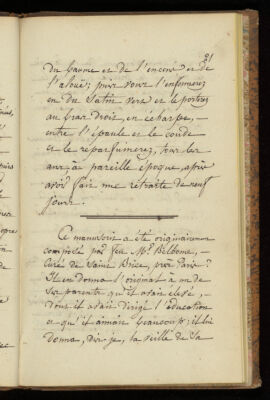 21
du baume et de l'encens et de
l'aloës; puis vous l'enfermerez
en du Satin vert et le porterez
au bras droit, en écharpe, –
entre l'épaule et le coude
et le reparfumerez, tous les
ans, à pareille époque, après
avoir fait une retraite de neuf
jours.
Ce manuscrit a été originairement
composé par feu Mr.
Curé de Saint Brice, près Paris.
Il en donna l'original à un de
ses parents qu'il avait élevé, –
dont il avait dirigé l'éducation
et qu'il aimait beaucoup; il lui
donna, dis-je, la veille de sa